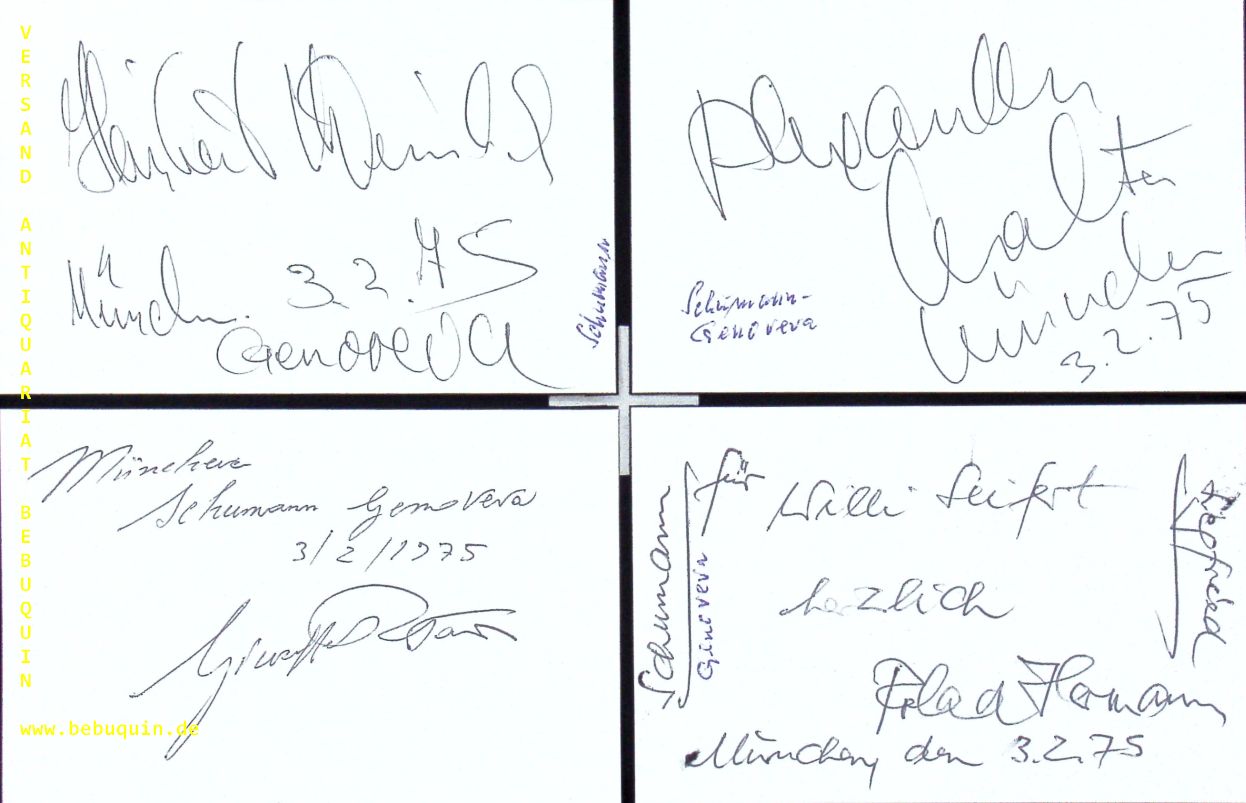 VERSAND ANTIQUARIAT BEBUQUIN
www.bebuquin.de
Herbert
München. 3.2.75
Genoveva
Schumann
Alexander
Malta
München
3.2.75
Schumann-
Genoveva
München
Schumann Genoveva
3/2/1975
für Willi Seifert
herzlich
Roland Hermann
München, den 3.2.75
Schumann
Genoveva
Siegfried